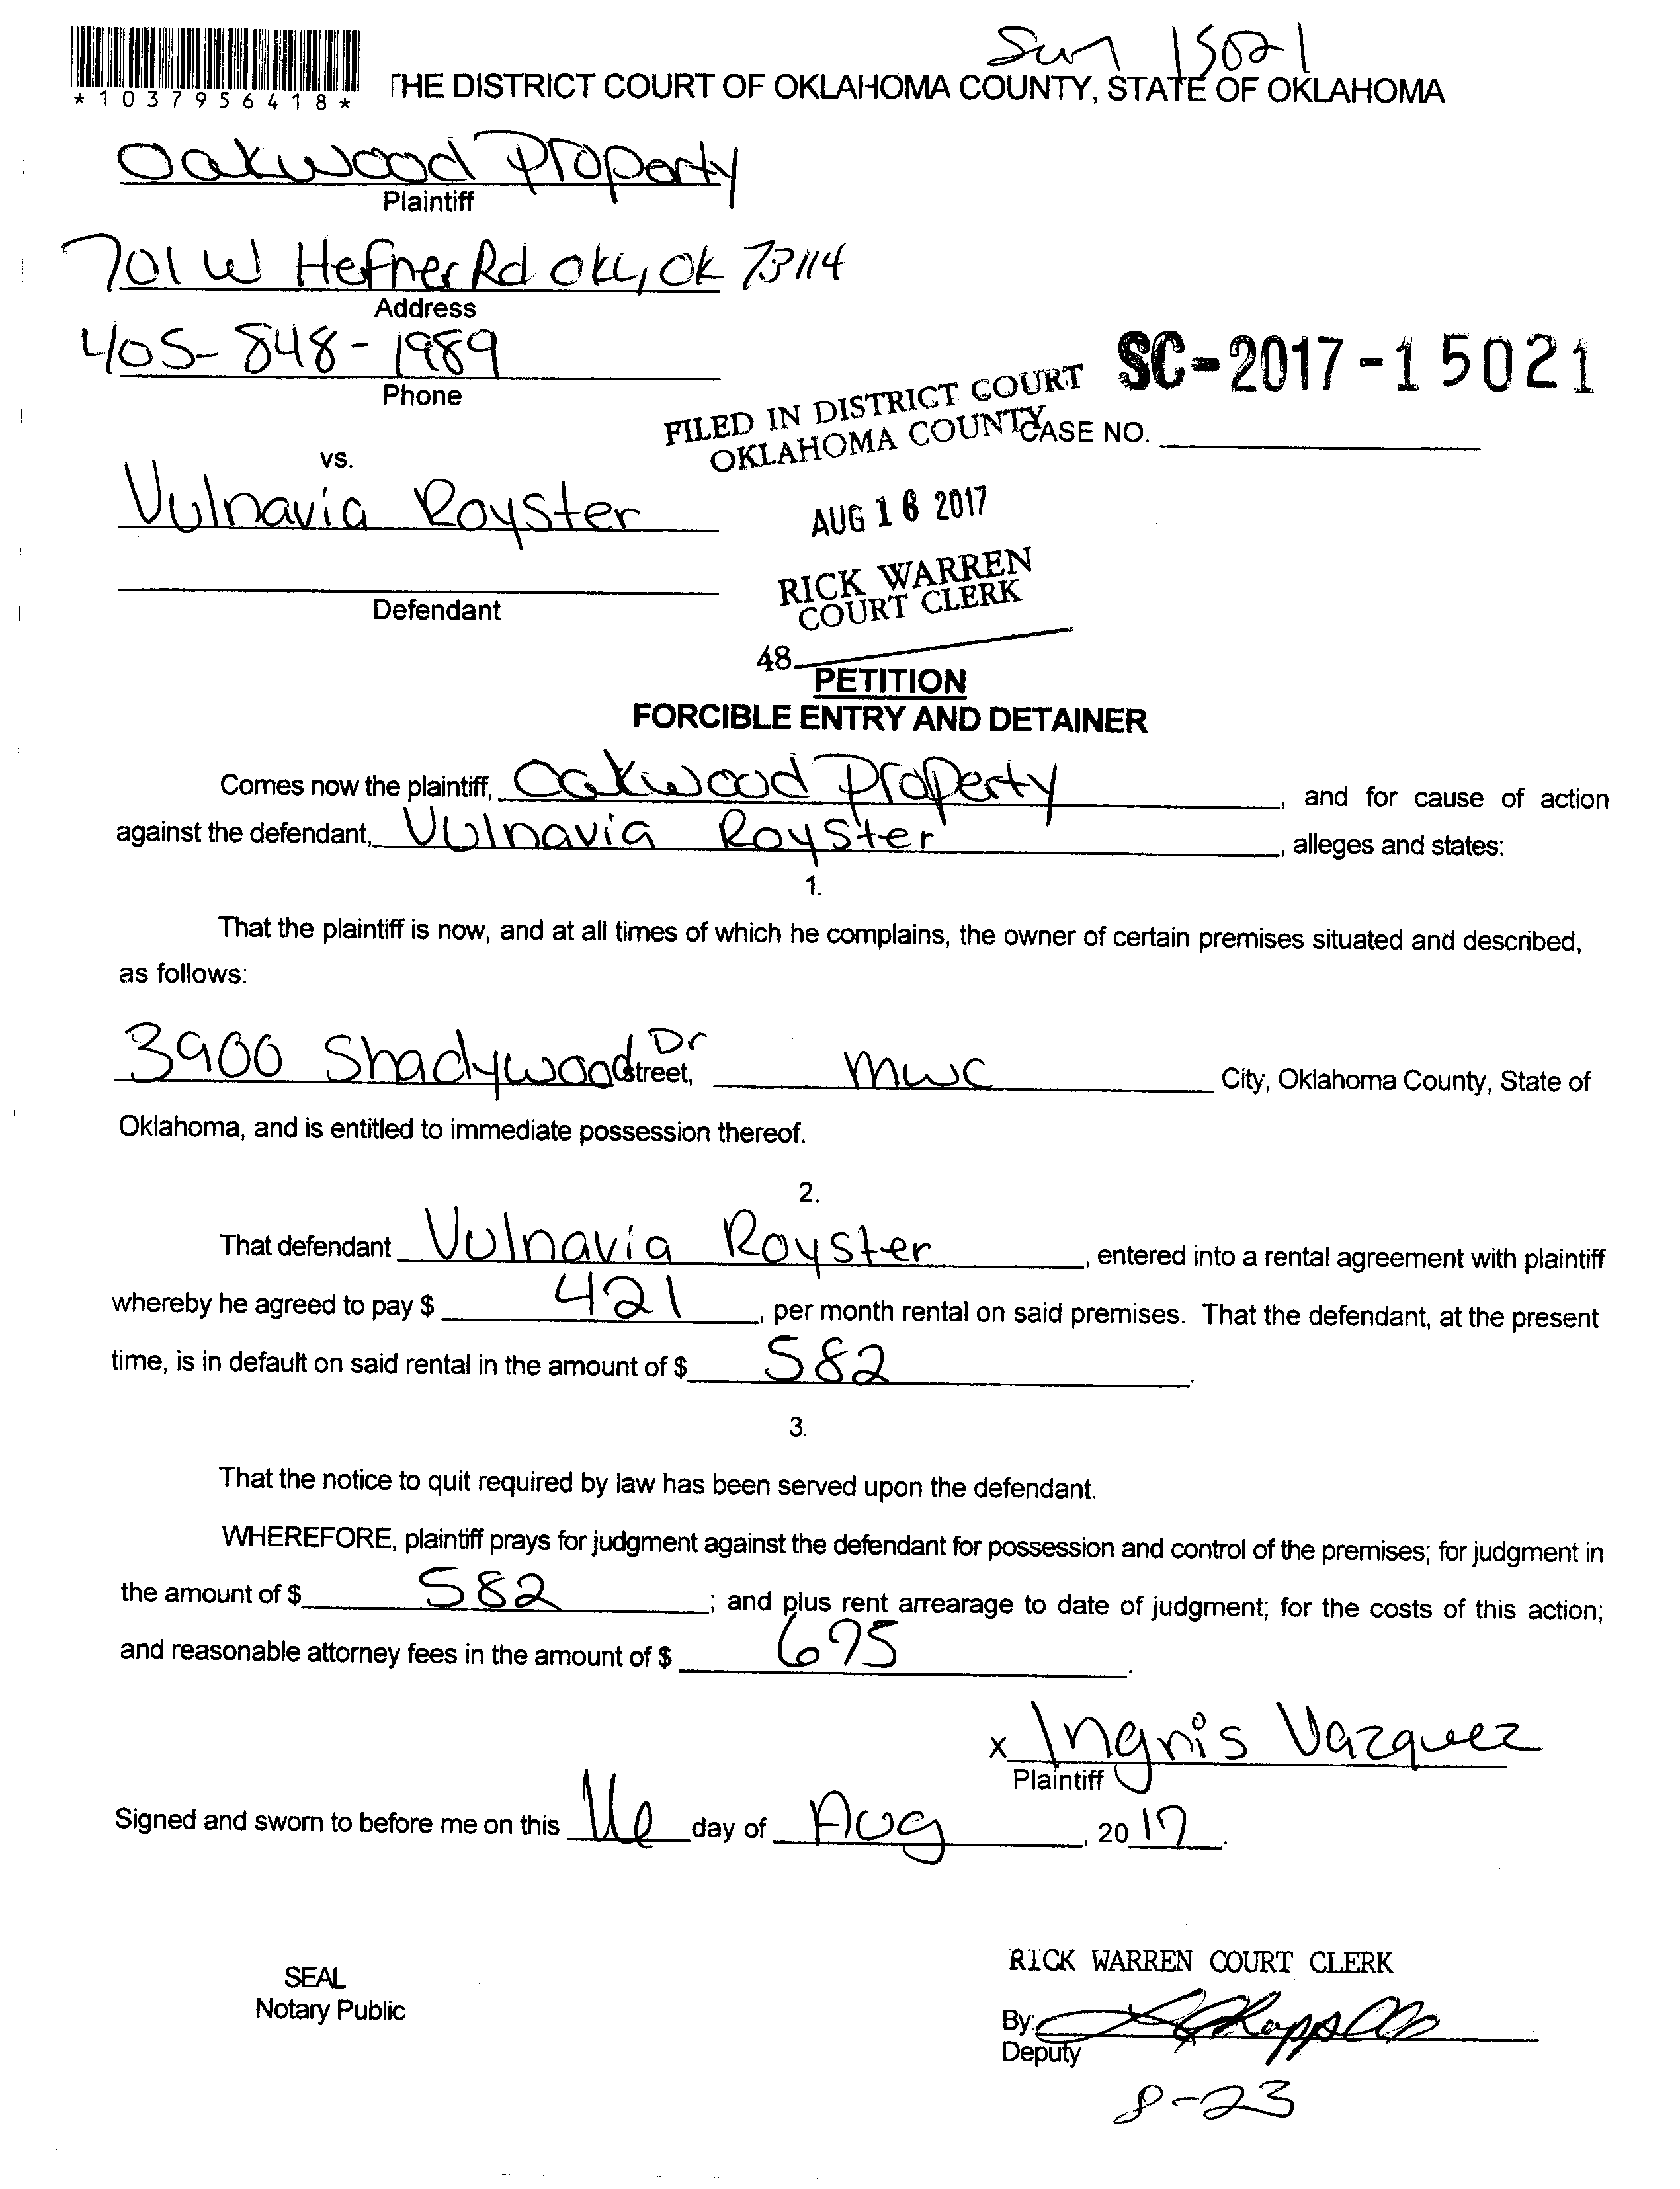 Sum 15021
*1037956418*
THE DISTRICT COURT OF OKLAHOMA COUNTY, STATE OF OKLAHOMA
Oakwood Property
Plaintiff
701 W Hefner Rd OKC, OK 73114
Address
405-848-1989
Phone
SC-2017-15021
FILED IN DISTRICT COURT
OKLAHOMA COUNTY
CASE NO.
vs.
Vulnavia Royster
AUG 16 2017
Defendant
RICK WARREN
COURT CLERK
48
PETITION
FORCIBLE ENTRY AND DETAINER
Comes now the plaintiff, Oakwood Property, and for cause of action
against the defendant, Vulnavia Royster, alleges and states:
1.
That the plaintiff is now, and at all times of which he complains, the owner of certain premises situated and described,
as follows:
3900 Shadywood Dr Street, MWC City, Oklahoma County, State of
Oklahoma, and is entitled to immediate possession thereof.
2.
That defendant Vulnavia Royster, entered into a rental agreement with plaintiff
whereby he agreed to pay $ 421, per month rental on said premises. That the defendant, at the present
time, is in default on said rental in the amount of $ 582.
3.
That the notice to quit required by law has been served upon the defendant.
WHEREFORE, plaintiff prays for judgment against the defendant for possession and control of the premises; for judgment in
the amount of $ 582; and plus rent arrearage to date of judgment; for the costs of this action;
and reasonable attorney fees in the amount of $ 675.
x Ingris Vazquez
Plaintiff
Signed and sworn to before me on this 16 day of Aug, 2017.
SEAL
Notary Public
RICK WARREN COURT CLERK
By:
Deputy
8-23